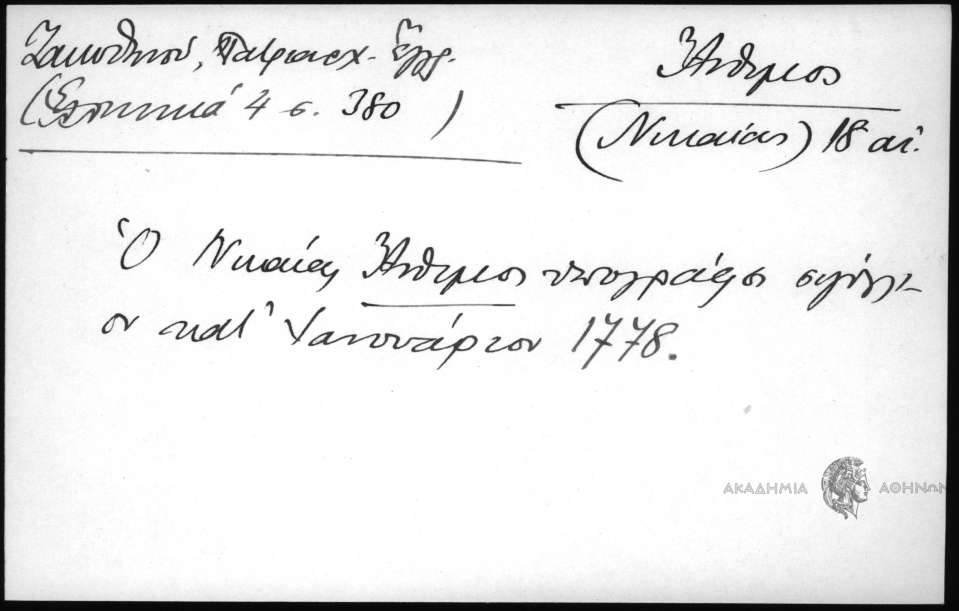 Ζακυθηνού, Πατριαρχ. Ἔγγρ.
(Ἑλληνικά 4 σ. 380)
Ἄνθιμος
(Νικαίας) 18 αἰ.
Ὁ Νικαίας Ἄνθιμος ὑπογράφει σιγίλλι-
ον κατ' Ἰαννουάριον 1778.
ΑΚΑΔΗΜΙΑ ΑΘΗΝΩΝ